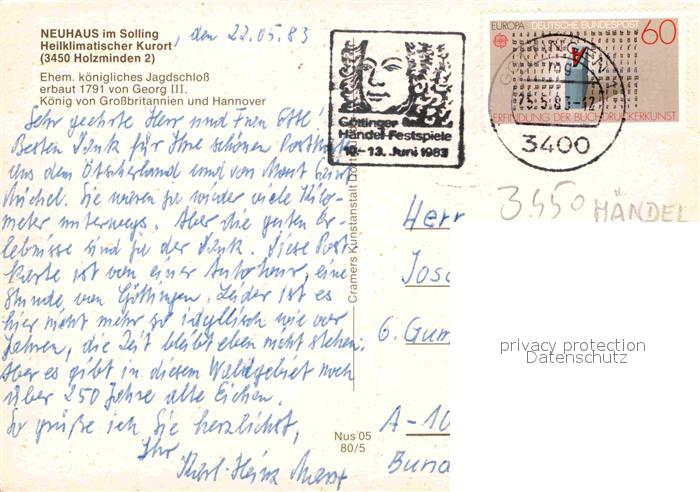 NEUHAUS im Solling
Heilklimatischer Kurort
(3450 Holzminden 2)
, den 22.05.83
Ehem. königliches Jagdschloß
erbaut 1791 von Georg III.
König von Großbritannien und Hannover
Sehr geehrte Herr und Frau
Besten Dank für Ihre schönen
aus dem Ötscherland und von Mont Saint
Michel. Sie waren ja wieder viele Kilo-
meter unterwegs. Aber die guten Er-
lebnisse sind ja der Dank. Diese Post-
karte ist von einer Autotour, eine
Stunde von Göttingen. Leider ist es
hier nicht mehr so idyllisch wie vor
Jahren, die Zeit bleibt eben nicht stehen.
Aber es gibt in diesem Waldgebiet noch
über 250 Jahre alte Eichen.
So grüße ich Sie herzlichst,
Ihr
Karl-Heinz
Nus 05
80/5
Cramers Kunstanstalt Dortm
Göttinger
Händel-Festspiele
10.-13. Juni 1983
EUROPA DEUTSCHE BUNDESPOST 60
ERFINDUNG DER BUCHDRUCKERKUNST
25.5.83-12
3400
3450 HÄNDEL
Herr
Jose
6. Gum
A-10
Bund
privacy protection
Datenschutz